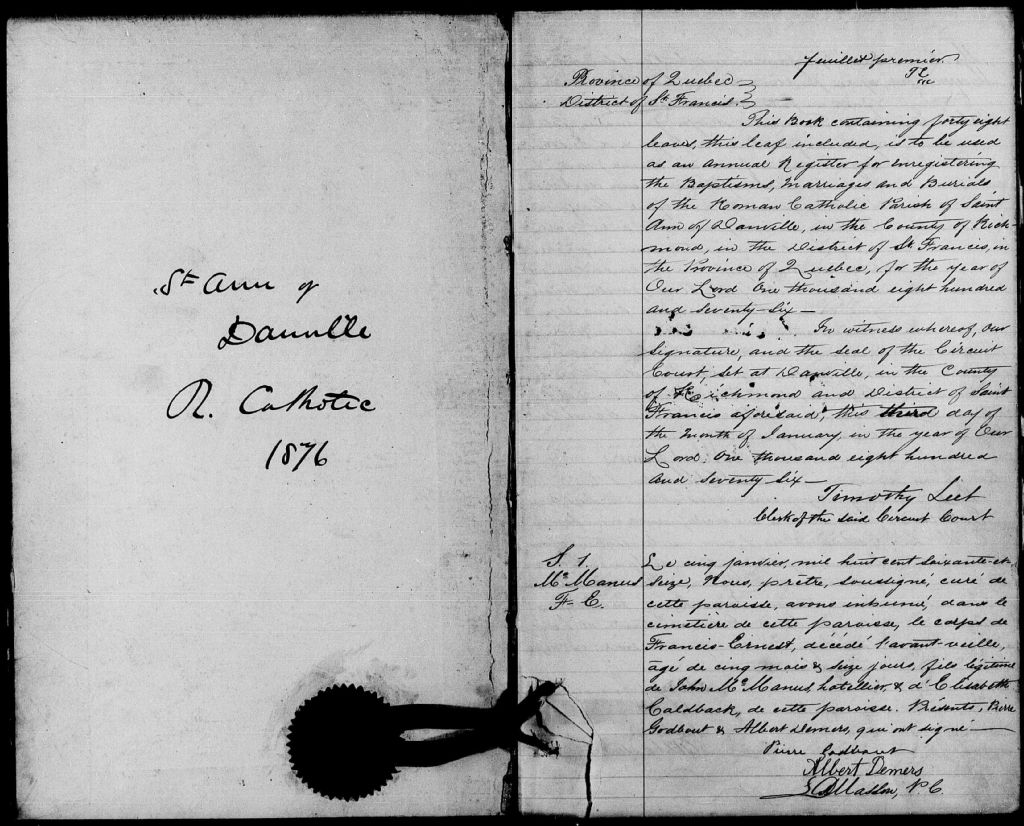 St Ann of
Danville
R. Catholic
1876
feuillet premier
TL
Province of Quebec
District of St Francis.
This Book containing forty eight
leaves, this leaf included, is to be used
as an annual Register for enregistering
the Baptisms, Marriages and Burials
of the Roman Catholic Parish of Saint
Ann of Danville, in the County of Rich-
mond, in the District of St Francis, in
the Province of Quebec, for the year of
Our Lord One thousand eight hundred
and seventy-six —
In witness whereof, our
signature, and the seal of the Circuit
Court, set at Danville, in the County
of Richmond and District of Saint
Francis aforesaid, this third day of
the month of January, in the year of Our
Lord. One thousand eight hundred
and seventy-six —
Timothy Leet
Clerk of the said Circuit Court
S. 1.
McManus
F- E.
Le cinq janvier, mil huit cent soixante-et-
seize, Nous, prêtre, soussigné, curé de
cette paroisse, avons inhumé, dans le
cimetière de cette paroisse, le corps de
Francis-Ernest, décédé l'avant-veille,
âgé de cinq mois & seize jours, fils légitime
de John McManus, hotellier, & d'Elisabeth
Caldback, de cette paroisse. Présents, Pierre
Godbout & Albert Demers, qui ont signé —
Pierre Godbout
Albert Demers
Masson, P.C.